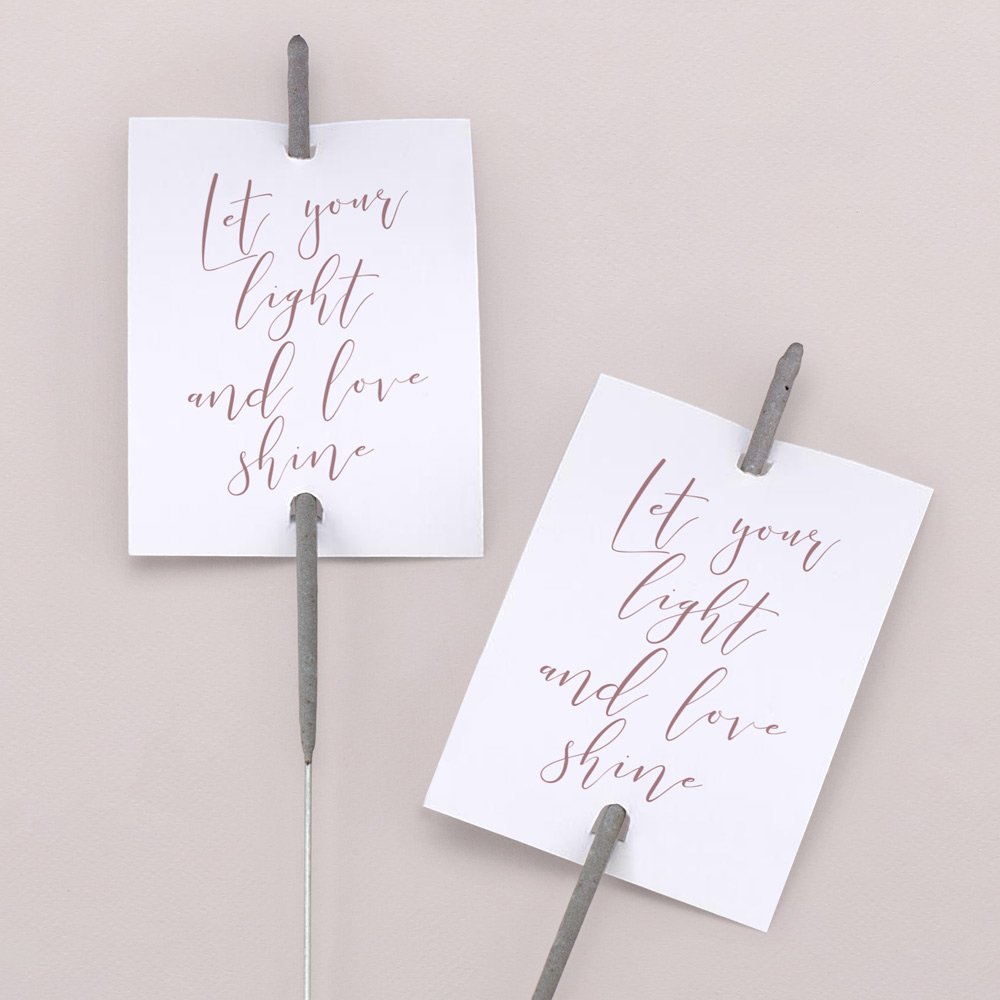 Let your
light
and love
shine
Let your
light
and love
shine